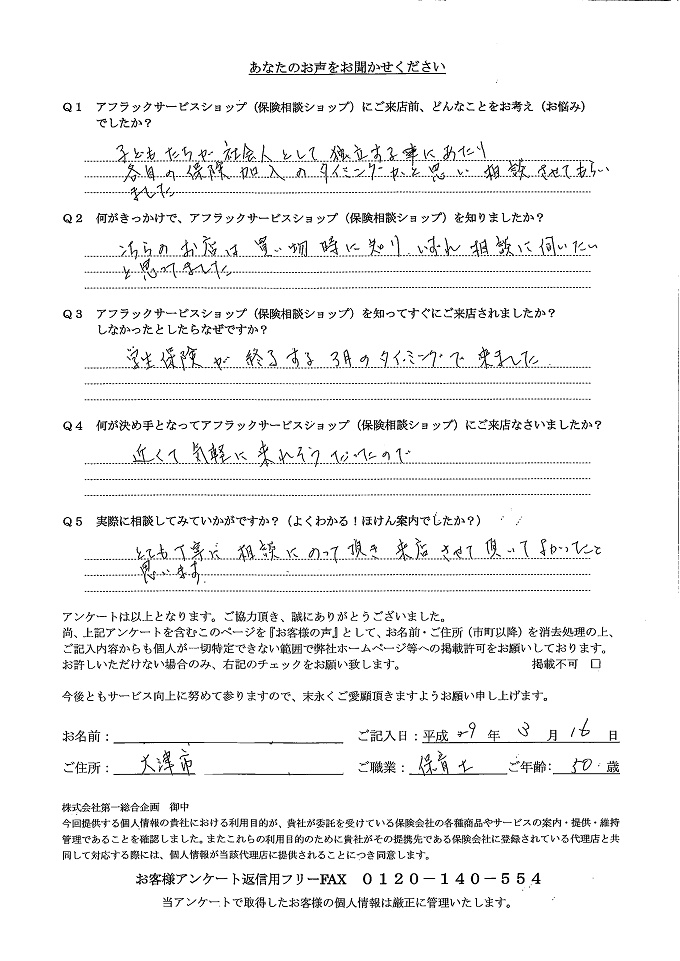 あなたのお声をお聞かせください
Q1 アフラックサービスショップ（保険相談ショップ）にご来店前、どんなことをお考え（お悩み）
でしたか？
子どもたちが 社会人として 独立する事にあたり
各自の保険加入のタイミングかと思い 相談させてもらい
ました
Q2 何がきっかけで、アフラックサービスショップ（保険相談ショップ）を知りましたか？
こちらのお店は 買い物時に知り いずれ 相談に伺いたい
と思ってました
Q3 アフラックサービスショップ（保険相談ショップ）を知ってすぐにご来店されましたか？
しなかったとしたらなぜですか？
学生保険が 終了する 3月のタイミングで 来ました
Q4 何が決め手となってアフラックサービスショップ（保険相談ショップ）にご来店なさいましたか？
近くて気軽に来れそうだったので
Q5 実際に相談してみていかがですか？（よくわかる！ほけん案内でしたか？）
とても丁寧に 相談にのって頂き 来店させて頂いてよかったこと
思います
アンケートは以上となります。ご協力頂き、誠にありがとうございました。
尚、上記アンケートを含むこのページを『お客様の声』として、お名前・ご住所（市町以降）を消去処理の上、
ご記入内容からも個人が一切特定できない範囲で弊社ホームページ等への掲載許可をお願いしております。
お許しいただけない場合のみ、右記のチェックをお願い致します。 掲載不可 □
今後ともサービス向上に努めて参りますので、末永くご愛顧頂きますようお願い申し上げます。
お名前： ご記入日：平成 29 年 3 月 16 日
ご住所： 大津市 ご職業： 保育士 ご年齢： 50 歳
株式会社第一総合企画 御中
今回提供する個人情報の貴社における利用目的が、貴社が委託を受けている保険会社の各種商品やサービスの案内・提供・維持
管理であることを確認しました。またこれらの利用目的のために貴社がその提携先である保険会社に登録されている代理店と共
同して対応する際には、個人情報が当該代理店に提供されることにつき同意します。
お客様アンケート返信用フリーFAX 0120－140－554
当アンケートで取得したお客様の個人情報は厳正に管理いたします。